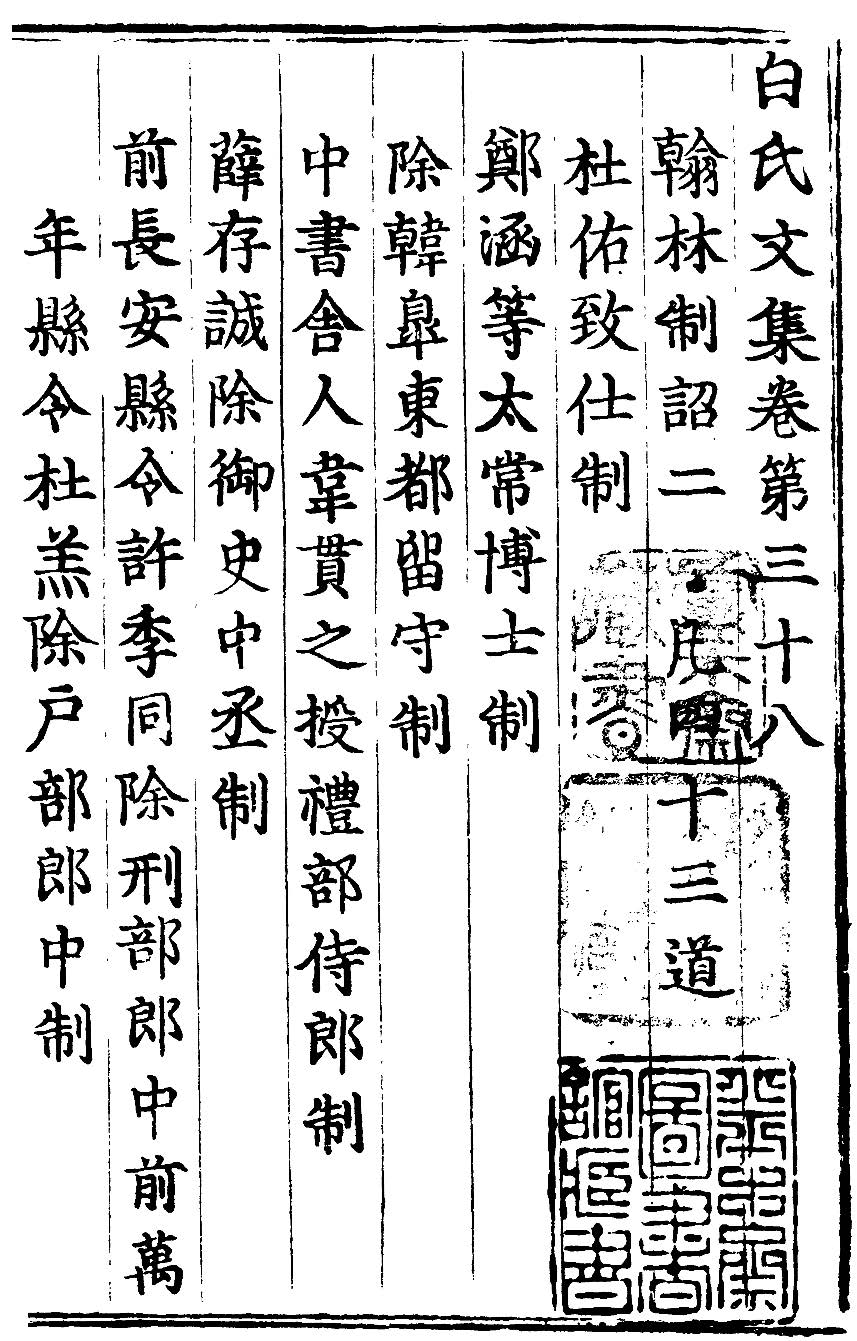 白氏文集卷第三十八
翰林制詔二・凡四十三道
杜佑致仕制
鄭涵等太常博士制
除韓臯東都留守制
中書舍人韋貫之授禮部侍郎制
薛存誠除御史中丞制
前長安縣令許季同除刑部郎中前萬
年縣令杜羔除戶部郎中制